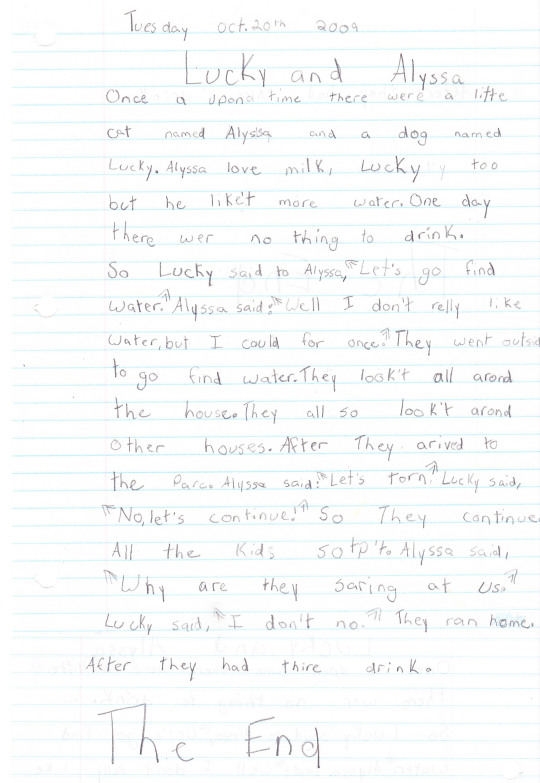 Tuesday oct. 20th 2009
Lucky and Alyssa
Once a upona time there were a litte
cat named Alyssa and a dog named
Lucky. Alyssa love milk, Lucky too
but he like't more water. One day
there wer no thing to drink.
So Lucky said to Alyssa, "Let's go find
water." Alyssa said: "Well I don't relly like
water, but I could for once." They went outsid
to go find water. They look't all arond
the house. They all so look't arond
other houses. After They arived to
the Parc. Alyssa said: "Let's torn." Lucky said,
"No, let's continue." So They continue
All the Kids sotp'to Alyssa said,
"Why are they saring at us."
Lucky said, "I don't no." They ran home.
After they had thire drink.
The End